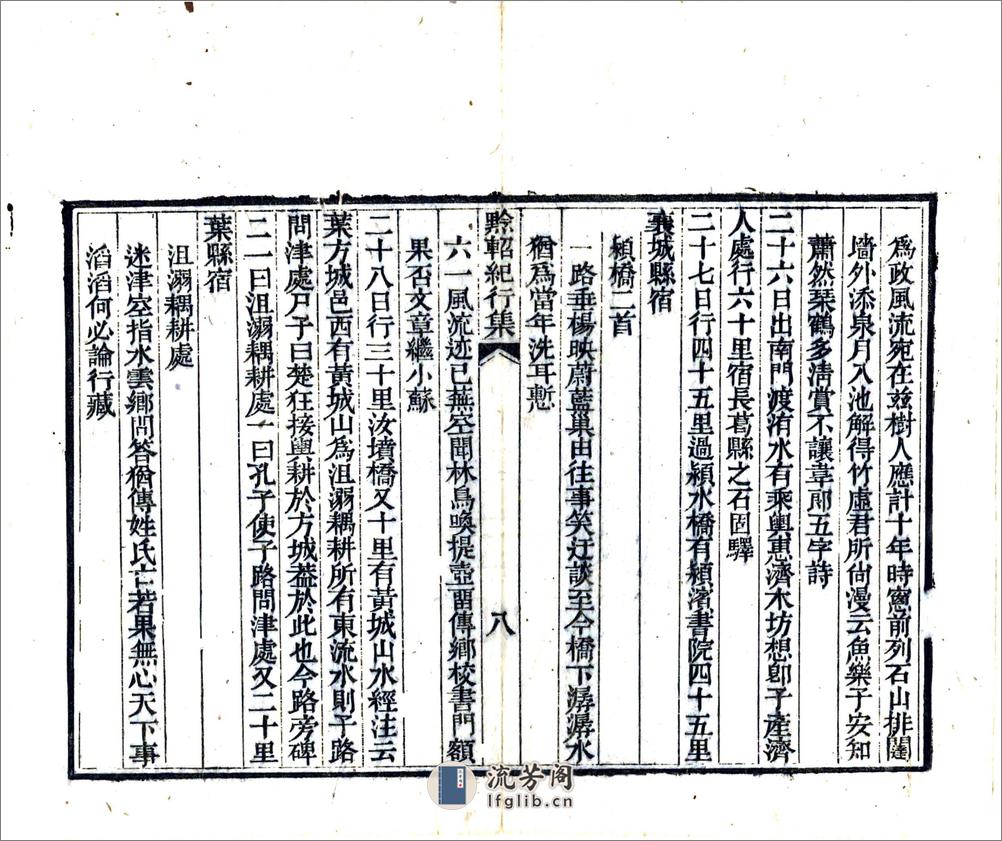 為政風流宛在兹樹人應計十年時窻前列石山排闥
墻外添泉月入池解得竹虛君所尙漫云魚樂子安知
蕭然琹鶴多淸賞不讓韋郞五字詩
二十六日出南門渡洧水有乘輿惠濟木坊想卽子產濟
人處行六十里宿長葛縣之石固驛
二十七日行四十五里過潁水橋有潁濱書院四十五里
襄城縣宿
潁橋二首
一路垂楊映蔚藍巢由往事笑迂談至今橋下潺潺水
猶為當年洗耳慙
黔軺紀行集
八
六一風流迹已蕪空聞林鳥喚提壺畱傳鄉校書門額
果否文章繼小蘇
二十八日行三十里汝墳橋又十里有黃城山水經注云
葉方城邑西有黃城山為沮溺耦耕所有東流水則子路
問津處尸子曰楚狂接輿耕於方城葢於此也今路旁碑
二一曰沮溺耦耕處一曰孔子使子路問津處又二十里
葉縣宿
沮溺耦耕處
迷津空指水雲鄉問答猶傳姓氏亡若果無心天下事
滔滔何必論行藏
流芳阁
lfglib.cn